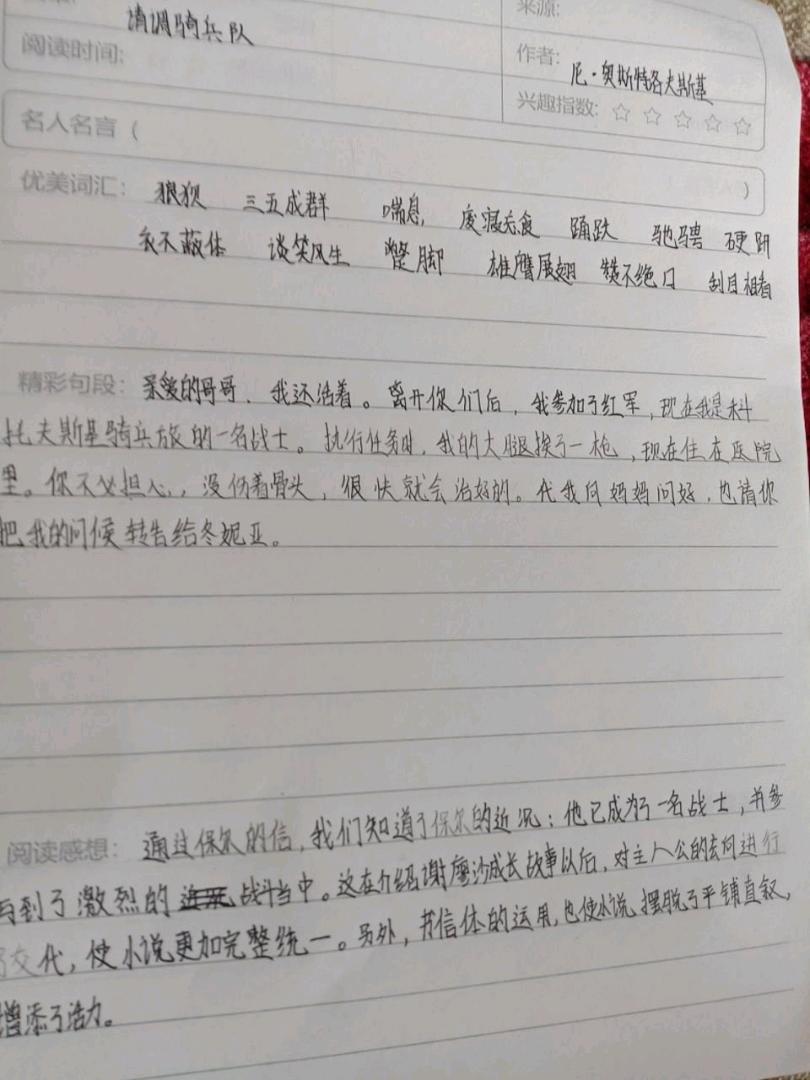 来源:
清调骑兵队
阅读时间:
作者: 尼·奥斯特洛夫斯基
兴趣指数: ☆ ☆ ☆ ☆ ☆
名人名言（
）
优美词汇: 狼狈 三五成群 喘息 废寝忘食 踊跃 驰骋 硬
衣不蔽体 谈笑风生 蹩脚 雄鹰展翅 赞不绝口 刮目相看
精彩句段: 亲爱的哥哥、我还活着。离开你们后，我参加了红军，现在我是科
托夫斯基骑兵旅的一名战士。执行任务时，我的大腿挨了一枪，现在住在医院
里。你不必担心，没伤着骨头，很快就会治好的。代我向妈妈问好，也请你
把我的问候转告给冬妮亚。
阅读感想: 通过保尔的信，我们知道了保尔的近况：他已成为了一名战士，并参
与到了激烈的战斗当中。这在介绍谢廖沙成长故事以后，对主人公的去向进行
了交代，使小说更加完整统一。另外，书信体的运用，也使小说摆脱了平铺直叙，
增添了活力。